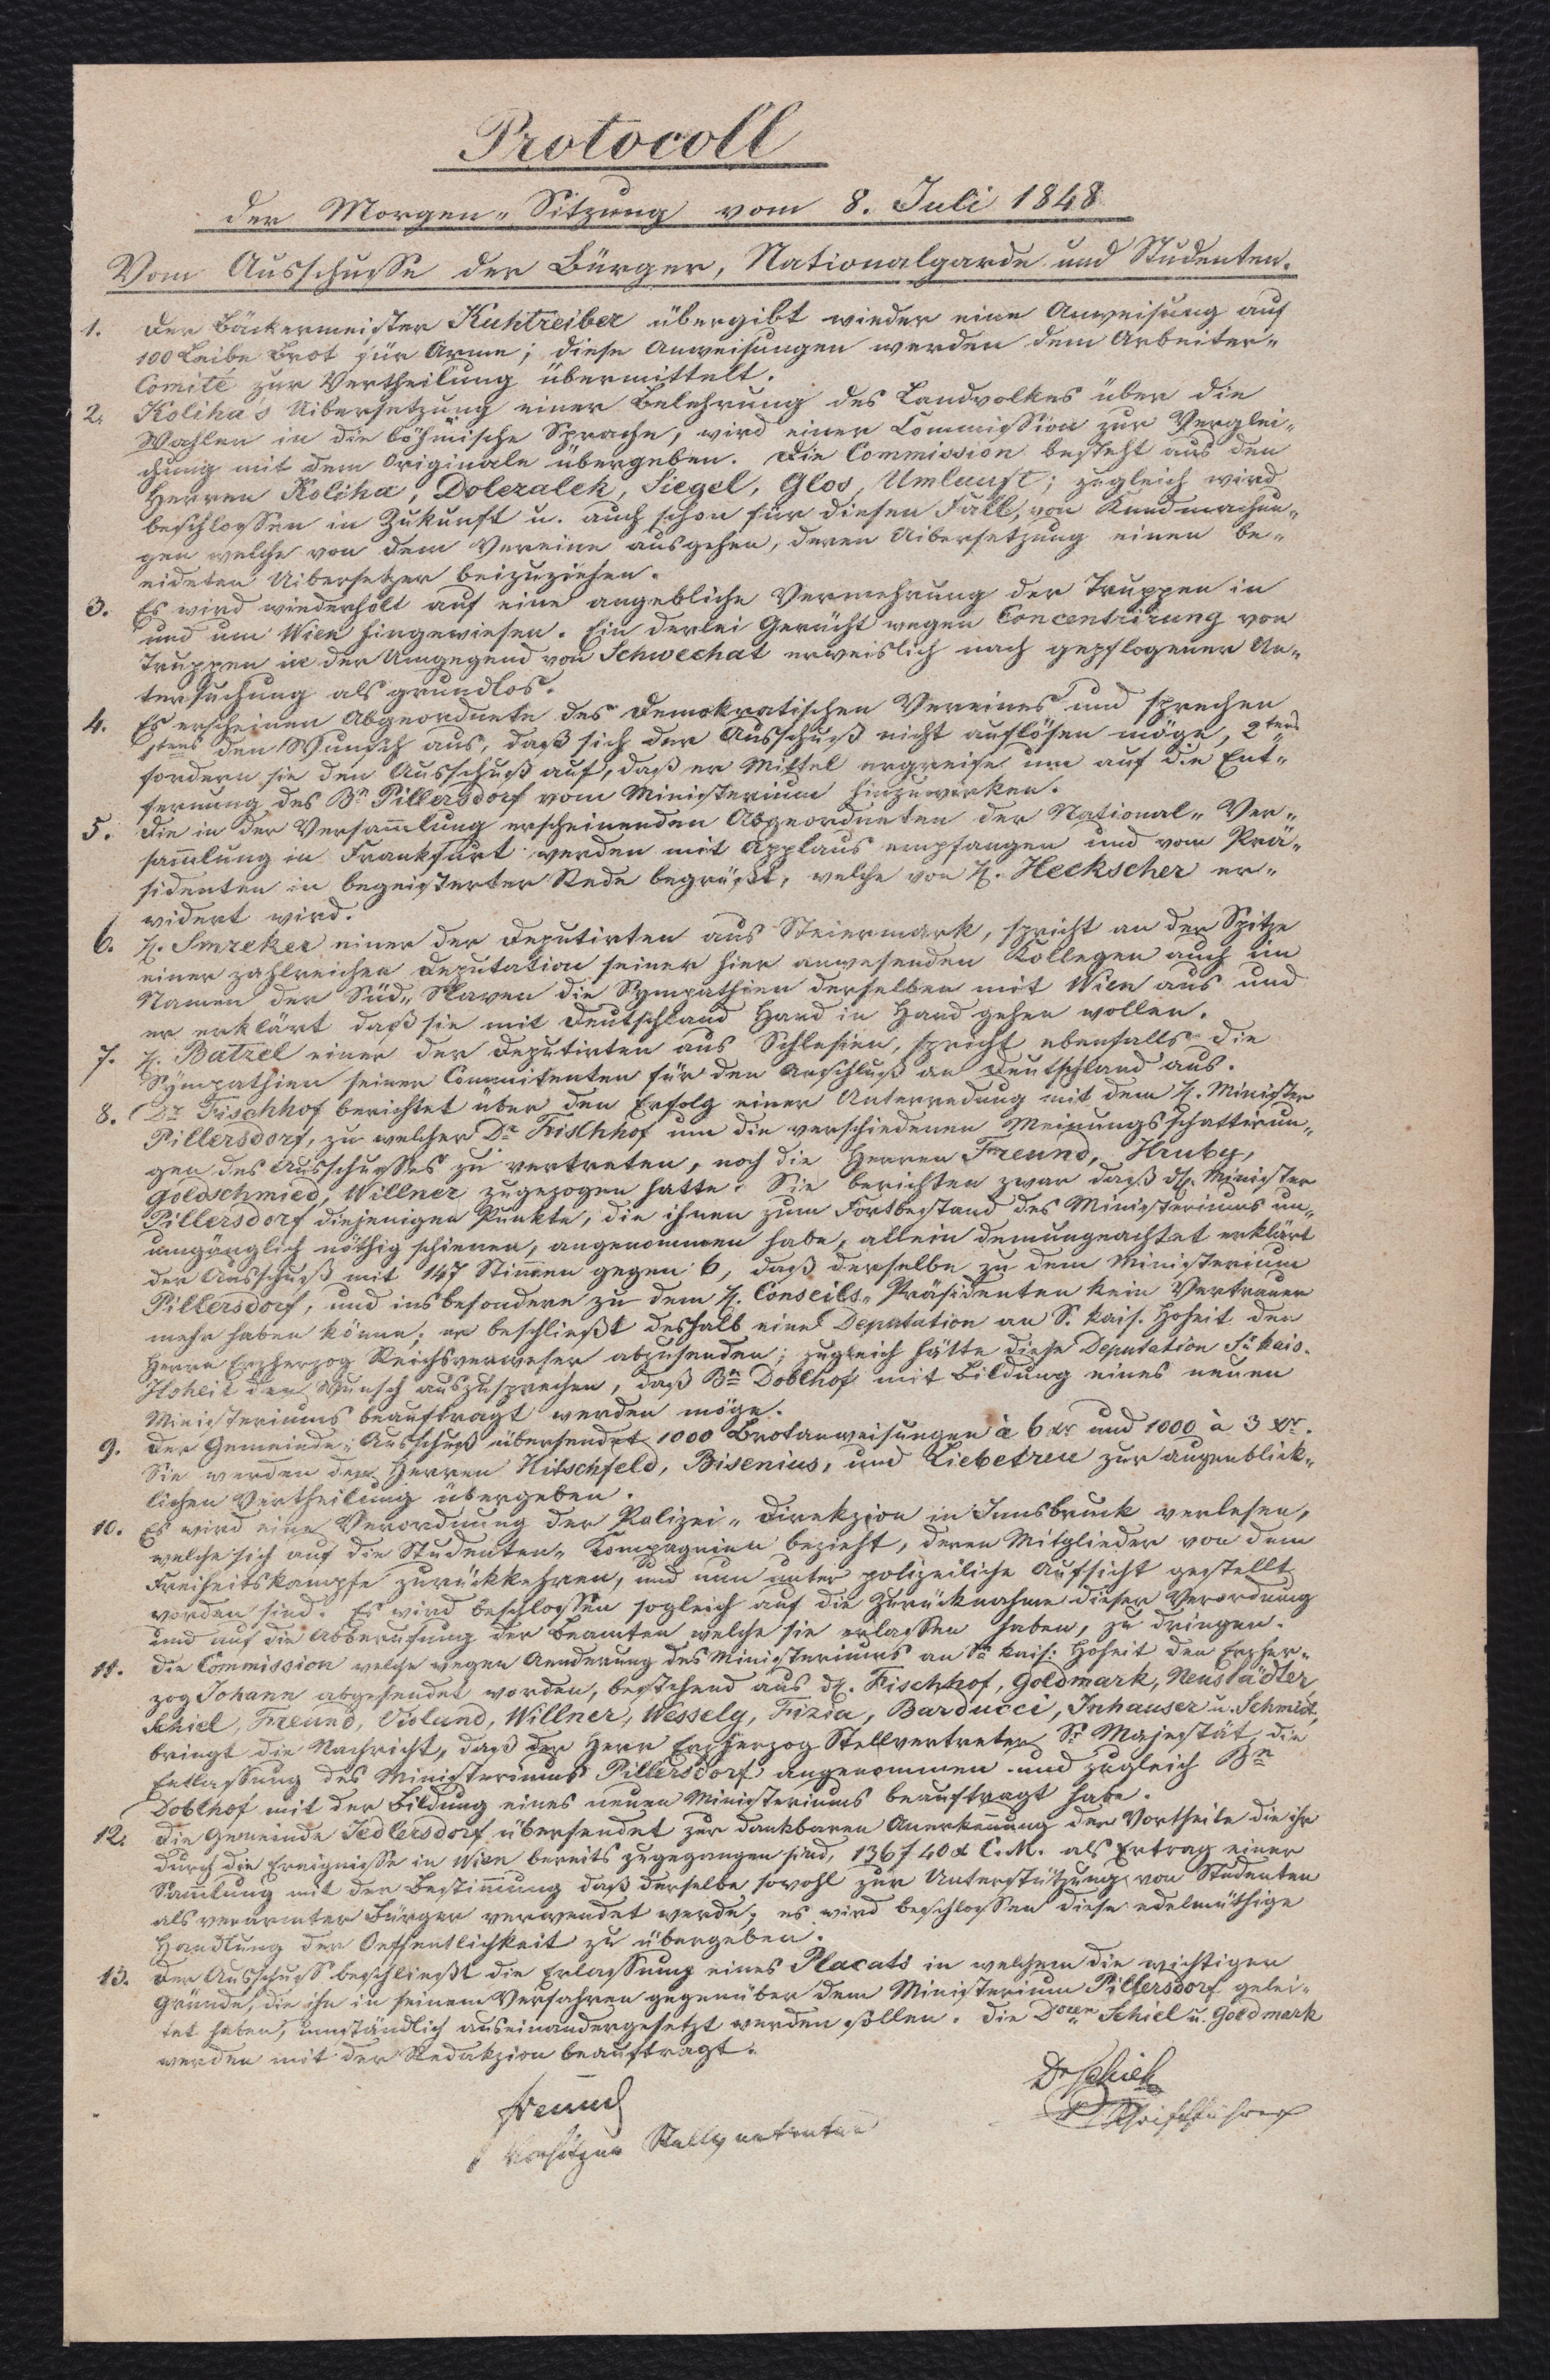 Protocoll
der Morgen-Sitzung vom 8. Juli 1848
Vom Ausschusse der Bürger, Nationalgarde und Studenten.
1. Der Bäckermeister Kuhtreiber übergibt wieder eine Anweisung auf
100 Leibe Brot für Arme; diese Anweisungen werden dem Arbeiter-
Comité zur Vertheilung übermittelt.
2. Koliha's Uibersetzung einer Belehrung des Landvolkes über die
Wahlen in die böhmische Sprache, wird einer Commission zur Verglei-
chung mit dem Originale übergeben. Die Commission besteht aus den
Herren Koliha, Dolezalek, Siegel, Glos, Umlauft; zugleich wird
beschlossen in Zukunft u. auch schon für diesen Fall, von Kundmachun-
gen welche von dem Vereine ausgehen, deren Uibersetzung einen be-
eideten Uibersetzer beizuziehen.
3. Es wird wiederholt auf eine angebliche Vermehrung der Truppen in
und um Wien hingewiesen. Ein derlei Gerücht wegen Concentrirung von
Truppen in der Umgegend von Schwechat erweislich nach gepflogener Un-
tersuchung als grundlos.
4. Es erscheinen Abgeordnete des Demokratischen Vereines und sprechen
1stens den Wunsch aus, daß sich der Ausschuß nicht auflösen möge, 2tens
fordern sie den Ausschuß auf, daß er Mittel ergreife um auf die Ent-
fernung des Bn Pillersdorf vom Ministerium hinzuwirken.
5. Die in der Versam̄lung erscheinenden Abgeordneten der National-Ver-
sam̄lung in Frankfurt werden mit Applaus empfangen und vom Prä-
sidenten in begeisterter Rede begrüßt, welche von H. Heckscher er-
widert wird.
6. H. Smreker einer der Deputirten aus Steiermark, spricht an der Spitze
einer zahlreichen Deputation seiner hier anwesenden Kollegen auch im
Namen der Süd-Slaven die Sympathien derselben mit Wien aus und
er erklärt daß sie mit Deutschland Hand in Hand gehen wollen.
7. H. Batzel einer der Deputirten aus Schlesien, spricht ebenfalls die
Sympathien seiner Committenten für den Anschluß an Deutschland aus.
8. Dr Fischhof berichtet über den Erfolg einer Unterredung mit dem H. Minister
Pillersdorf, zu welcher Dr Fischhof um die verschiedenen Meinungsschattirun-
gen des Ausschusses zu vertreten, noch die Herren Freund, Hruby,
Goldschmied, Willner zugezogen hatte. Sie berichten zwar daß H. Minister
Pillersdorf diejenigen Punkte, die ihnen zum Fortbestand des Ministeriums un-
umgänglich nöthig schienen, angenommen habe, allein demungeachtet erklärt
der Ausschuß mit 147 Stim̄en gegen 6, daß derselbe zu dem Ministerium
Pillersdorf, und insbesondere zu dem H. Conseils-Präsidenten kein Vertrauen
mehr haben könne; er beschließt deshalb eine Deputation an S. kais. Hoheit den
Herrn Erzherzog Reichsverweser abzusenden; zugleich hätte diese Deputation Sr kais.
Hoheit den Wunsch auszusprechen, daß Bn Doblhof mit Bildung eines neuen
Ministeriums beauftragt werden möge.
9. Der Gemeinde-Ausschuß übersendet 1000 Brotanweisungen à 6 xr und 1000 à 3 xr.
Sie werden den Herren Hitschfeld, Bisenius, und Liebetreu zur augenblick-
lichen Vertheilung übergeben.
10. Es wird eine Verordnung der Polizei-Direkzion in Innsbruck verlesen,
welche sich auf die Studenten-Kompagnien bezieht, deren Mitglieder von dem
Freiheitskampfe zurückkehren, und nun unter polizeiliche Aufsicht gestellt
worden sind. Es wird beschlossen sogleich auf die Zurücknahme dieser Verordnung
und auf die Abberufung der Beamten welche sie erlassen haben, zu dringen.
11. Die Commission welche wegen Aenderung des Ministeriums an Se kais: Hoheit den Erzher-
zog Johann abgesendet worden, bestehend aus H. Fischhof, Goldmark, Neustädler,
Schiel, Freund, Violand, Willner, Wessely, Frizia, Barducci, Inhauser u. Schmidt,
bringt die Nachricht, daß der Herr Erzherzog Stellvertreter Sr Majestät, die
Entlassung des Ministeriums Pillersdorf angenommen und zugleich Bn
Doblhof mit der Bildung eines neuen Ministeriums beauftragt habe.
12. Die Gemeinde Jedlersdorf übersendet zur dankbaren Anerkennung der Vortheile die ihr
durch die Ereignisse in Wien bereits zugegangen sind, 136 f 40 x C.M. als Ertrag einer
Sam̄lung mit der Bestim̄ung daß derselbe sowohl zur Unterstützung von Studenten
als verarmter Bürger verwendet werde; es wird beschlossen diese edelmüthige
Handlung der Oeffentlichkeit zu übergeben.
13. Der Ausschuss beschließt die Erlassung eines Placats in welchem die wichtigen
Gründe, die ihn in seinem Verfahren gegenüber dem Ministerium Pillersdorf gelei-
tet haben, umständlich auseinandergesetzt werden sollen. Die Doren Schiel u. Goldmark
werden mit der Redakzion beauftragt.
Freund
Vorsitzer Stellvertreter
Dr Schiel
Schriftführer